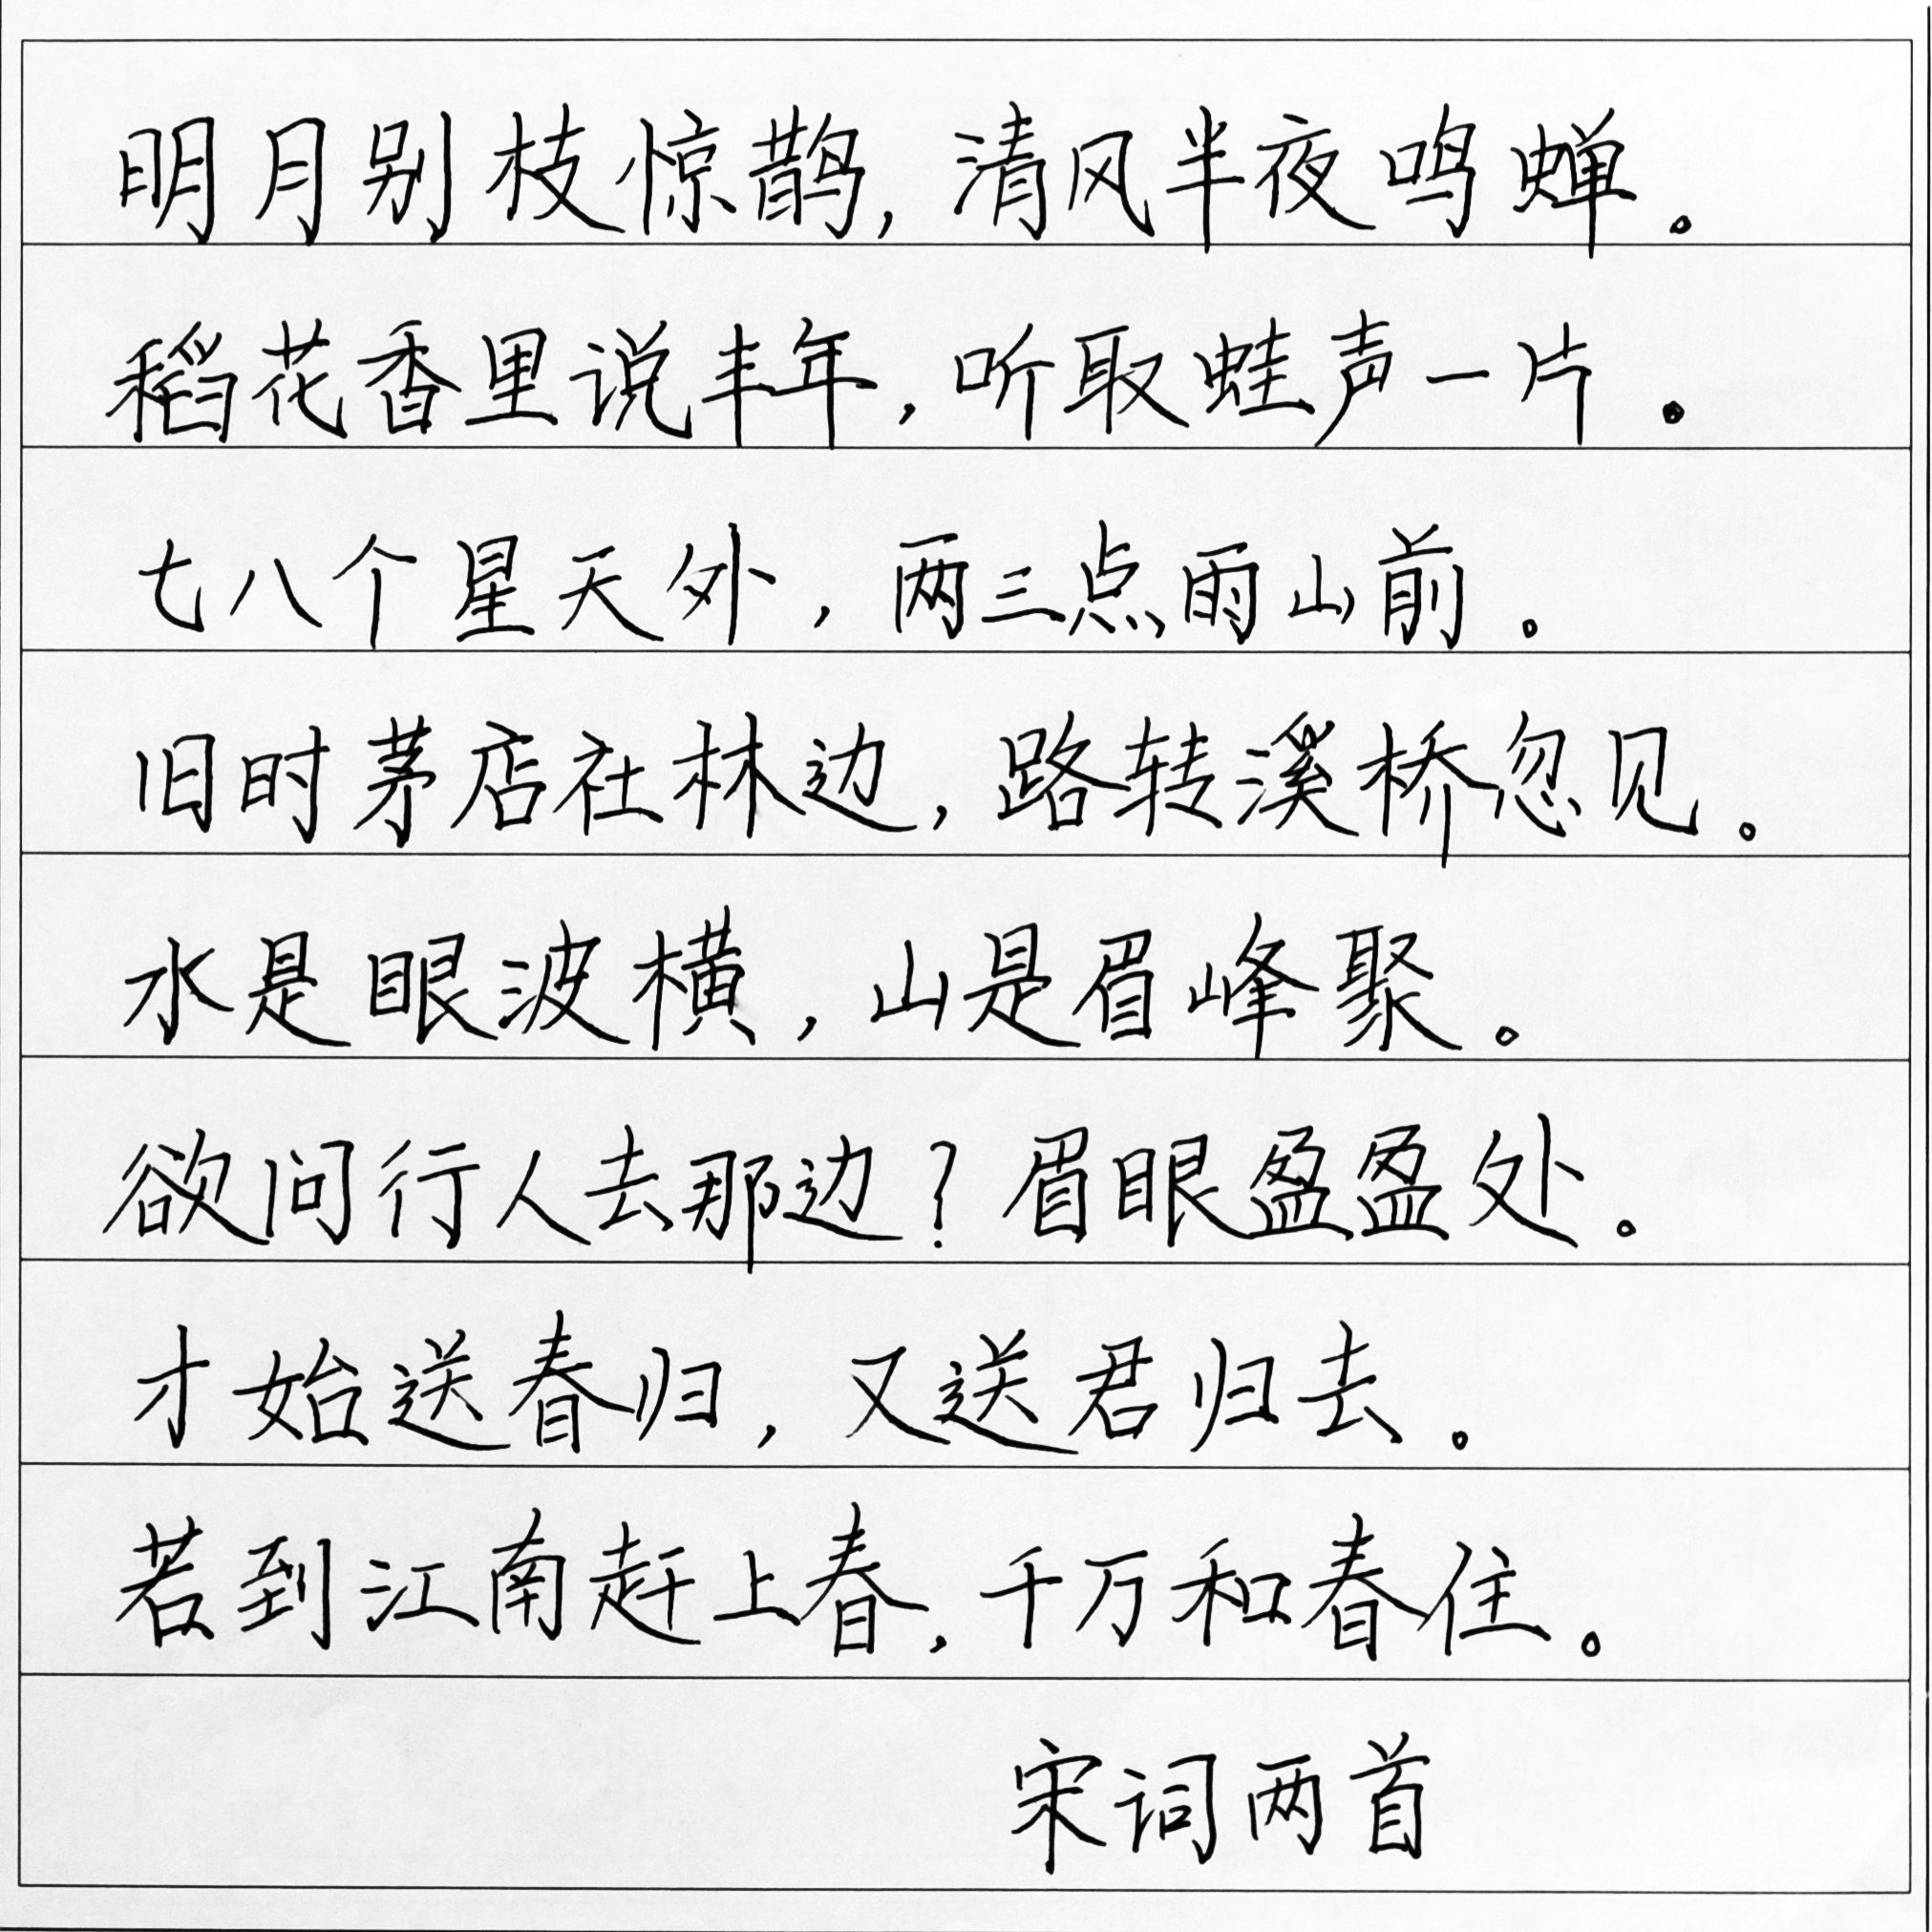 明月别枝惊鹊，清风半夜鸣蝉。
稻花香里说丰年，听取蛙声一片。
七八个星天外，两三点雨山前。
旧时茅店社林边，路转溪桥忽见。
水是眼波横，山是眉峰聚。
欲问行人去那边？眉眼盈盈处。
才始送春归，又送君归去。
若到江南赶上春，千万和春住。
宋词两首